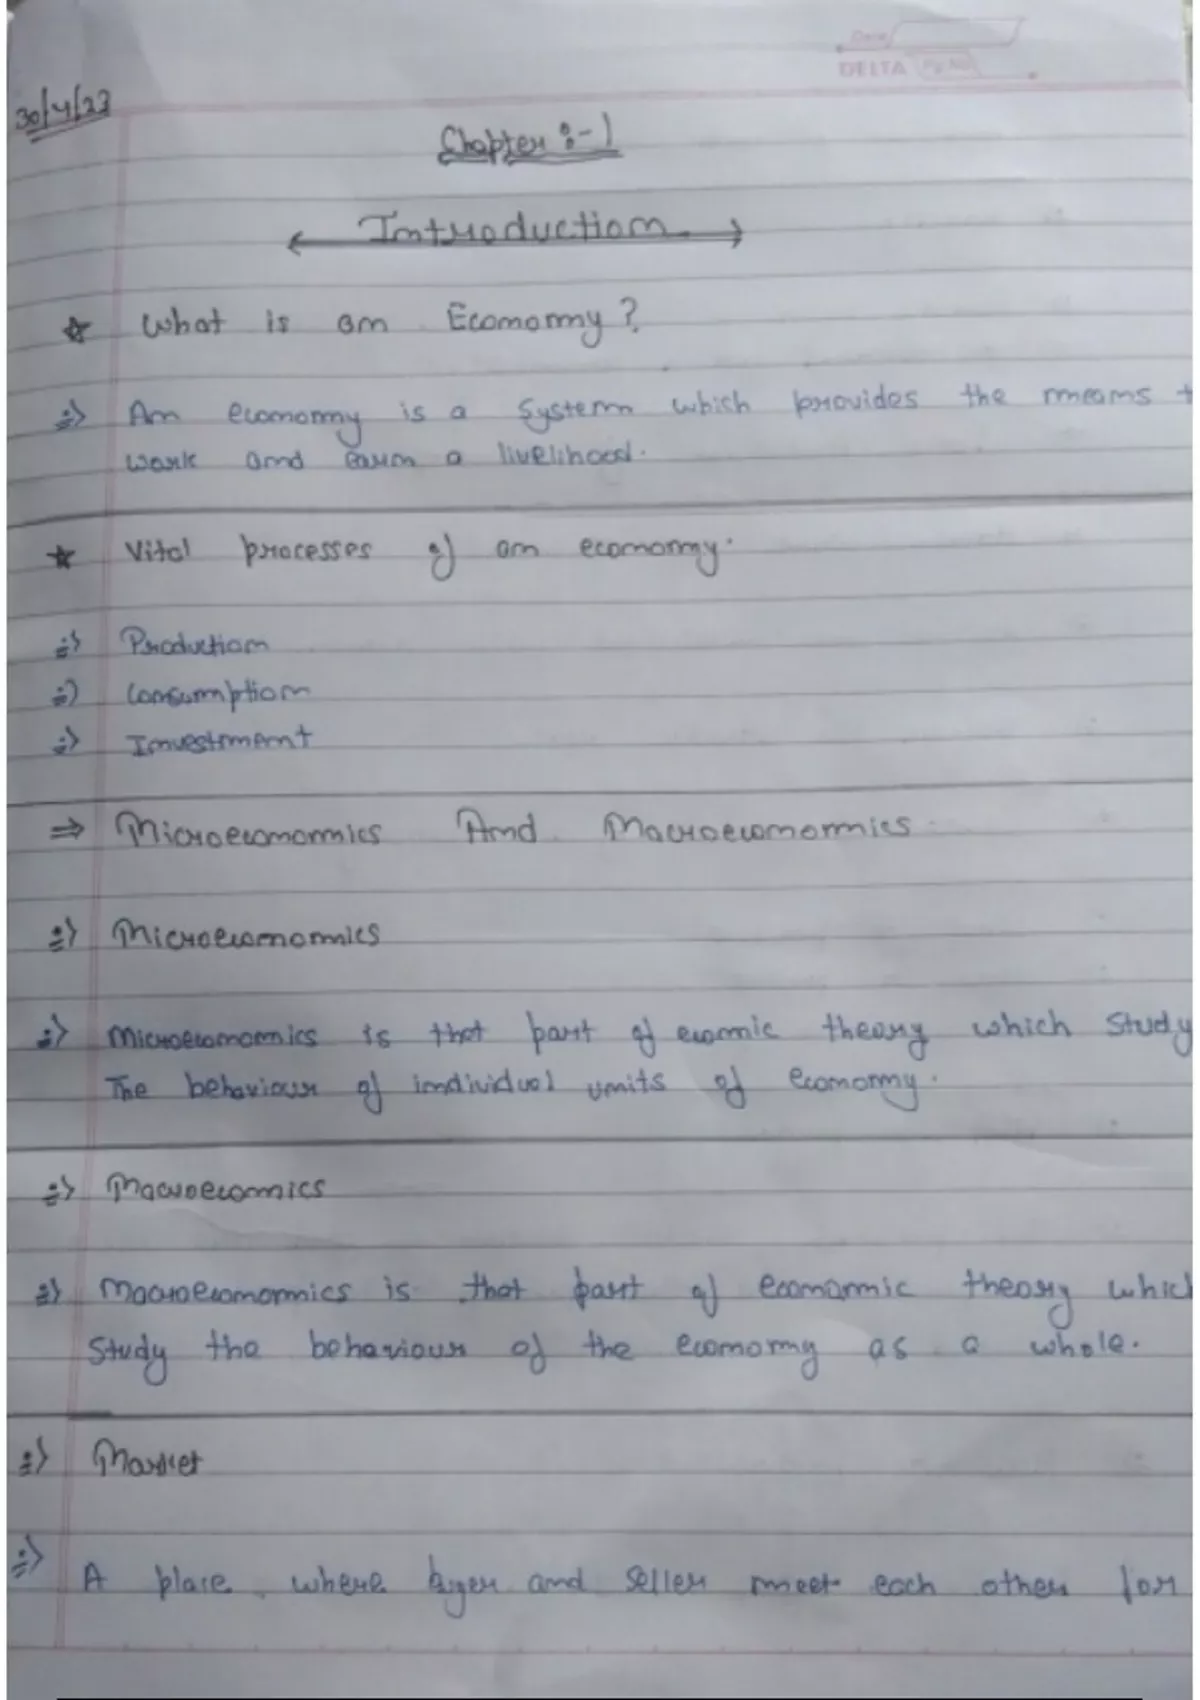 Date
DELTA
30/4/23
Chapter :- 1
Introduction
What is an Economy ?
An economy is a system which provides the means t
work and earn a livelihood.
Vital processes of an economy.
Production
Consumption
Investment
⇒ Microeconomics And Macroeconomics
Microeconomics
Microeconomics is that part of econmic theory which study
The behaviour of individual units of economy.
Macroeconmics
Macroeconomics is that part of economic theory which
Study the behaviour of the economy as a whole.
Market
A place where byer and seller meet each other for